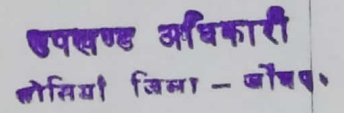 उपखण्ड अधिकारी
ओसियां जिला – जोधपु.